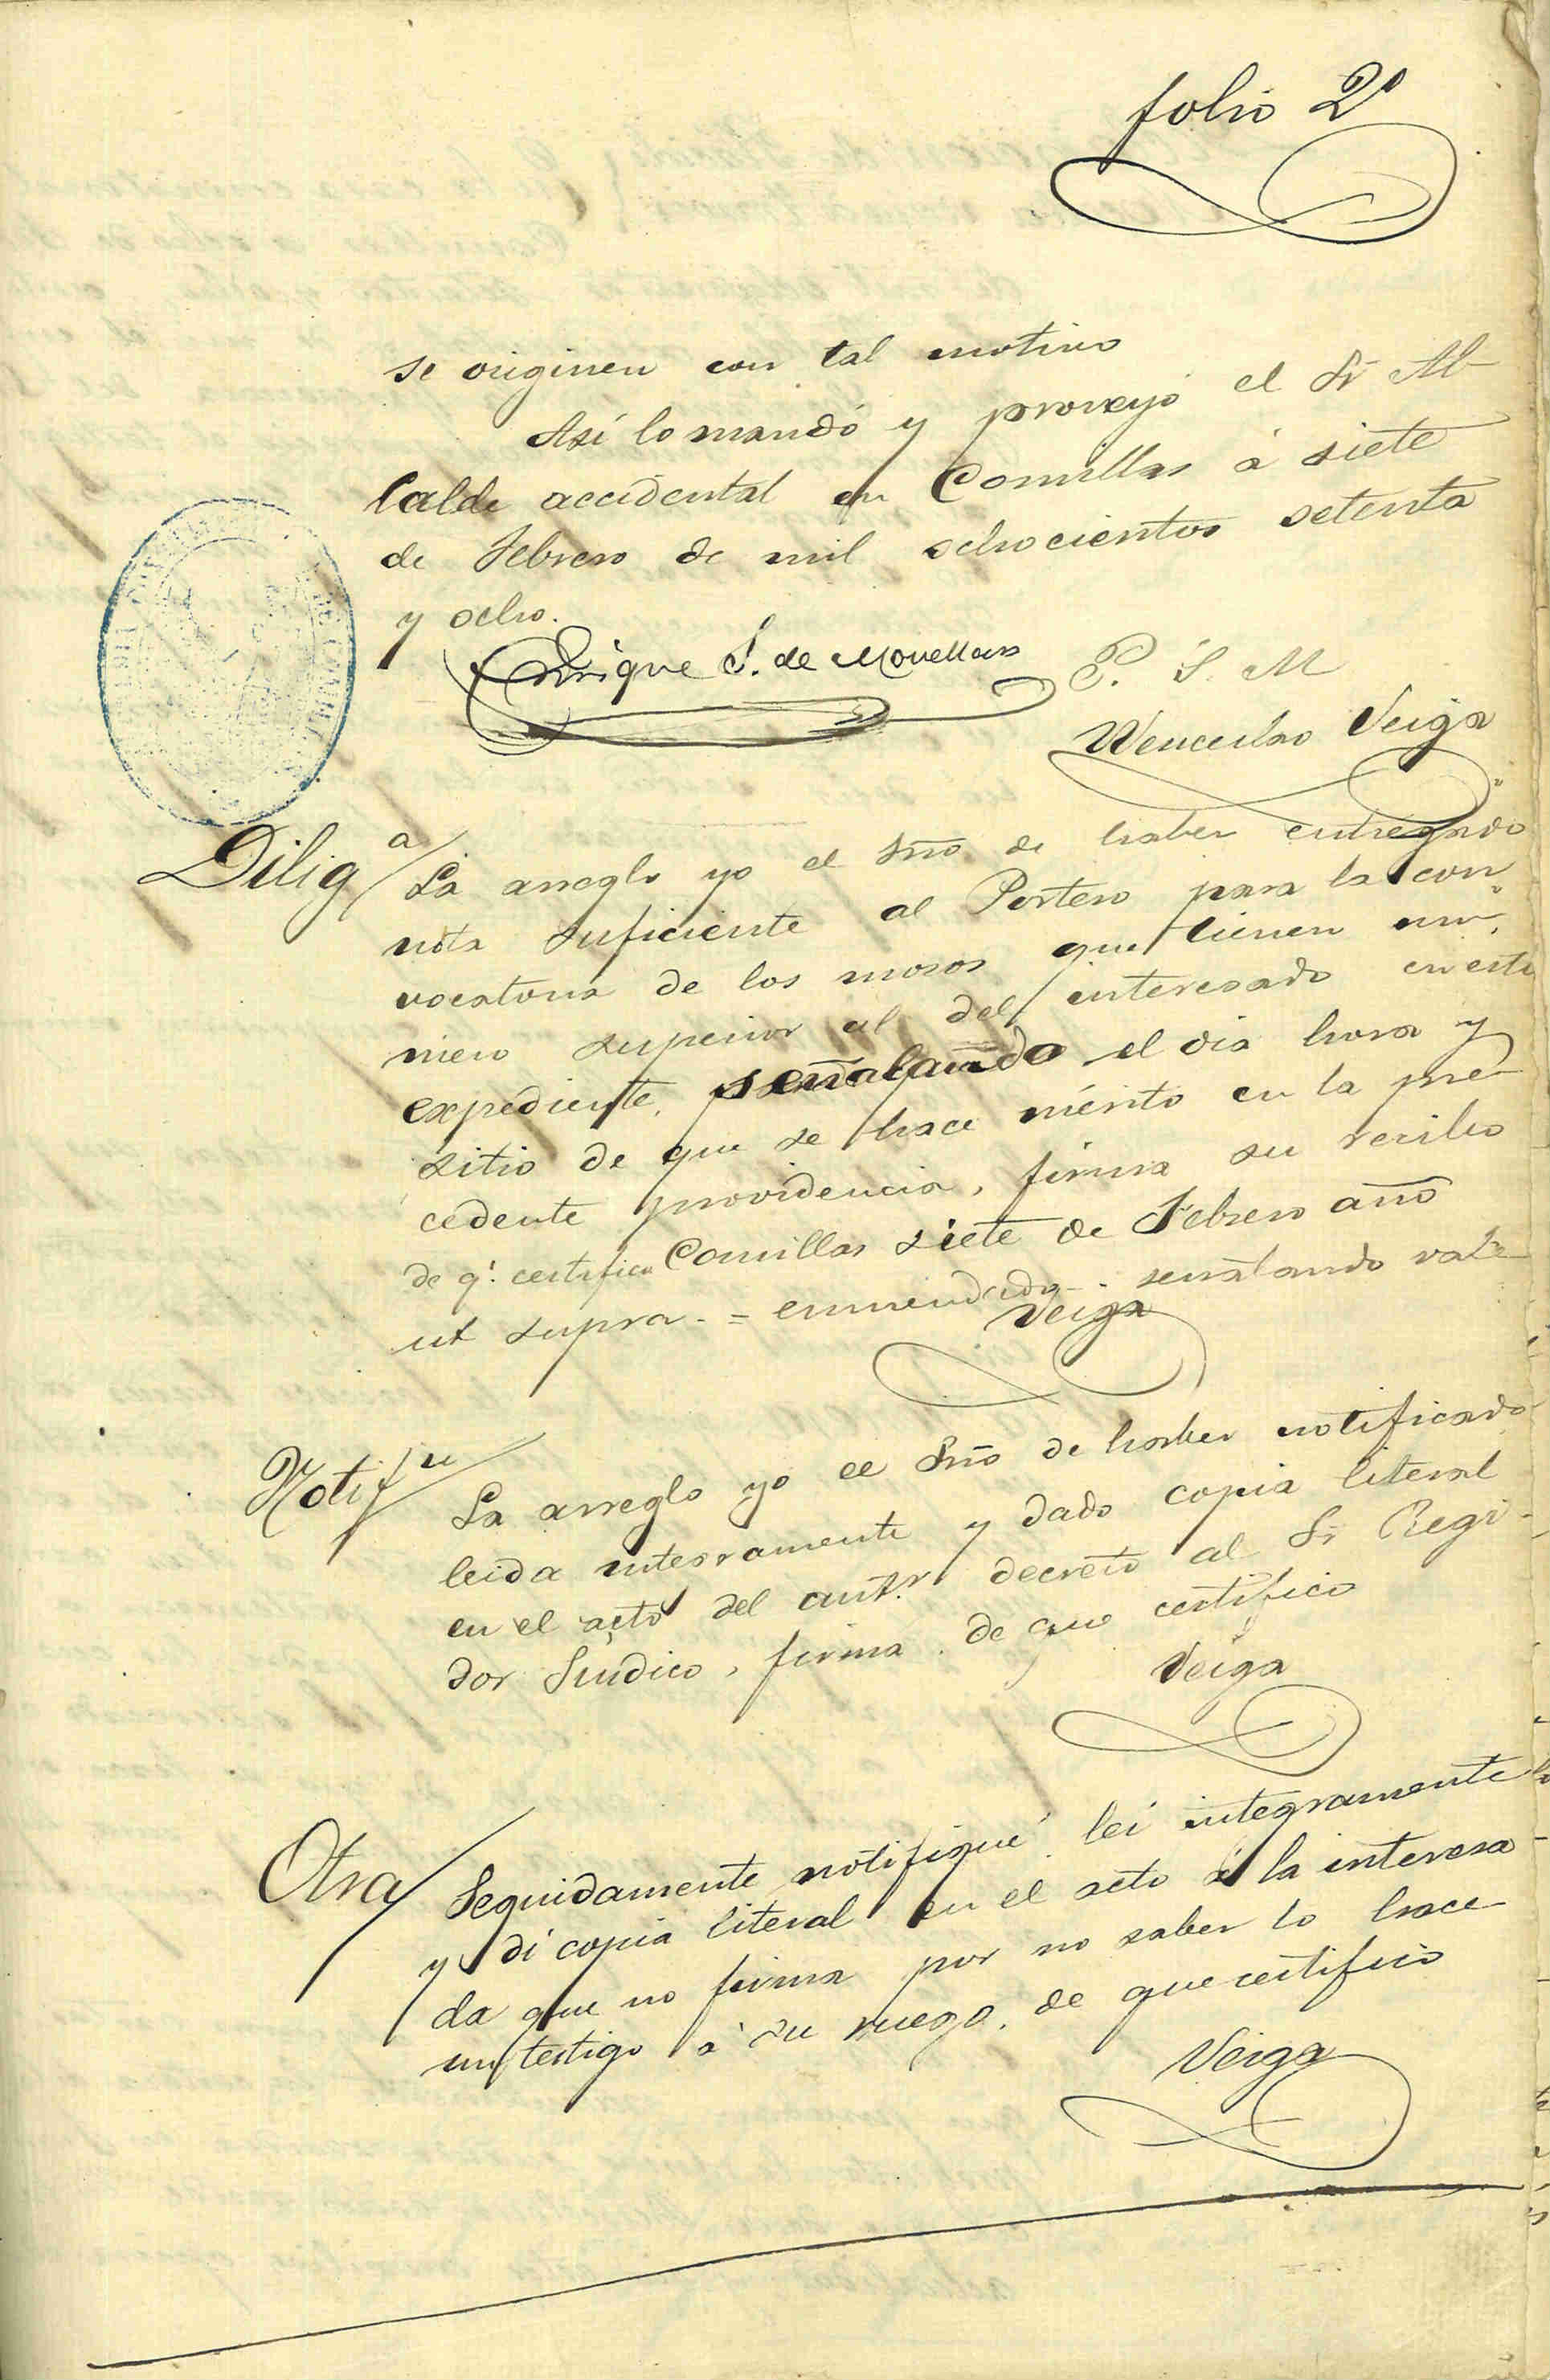 folio 2º
se originen con tal motivo
Así lo mandó y proveyó el Sr Al-
calde accidental en Comillas á siete
de Febrero de mil ochocientos setenta
y ocho.
Enrique S. de Movellan
P. S. M
Wenceslao Veiga
Diligª/ La arreglo yo el Srio de haber entregado
nota suficiente al Portero para la con-
vocatoria de los mosos que tienen nu-
mero superior al del interesado en este
expediente, señalando el dia hora y
sitio de que se hace mérito en la pre-
cedente providencia, firma su recibo
de q.e certifico Comillas siete de Febrero año
ut supra. = enmendado - señalando vale
Veiga
Notifn/ La arreglo yo el Srio de haber notificado
leida integramente y dado copia literal
en el acto del antr. decreto al Sr Regi-
dor Síndico, firma, de que certifico
Veiga
Otra/ Seguidamente notifiqué lei integramente
y dí copia literal en el acto á la interesa
da que no firma por no saber lo hace
un testigo á su ruego, de que certifico
Veiga